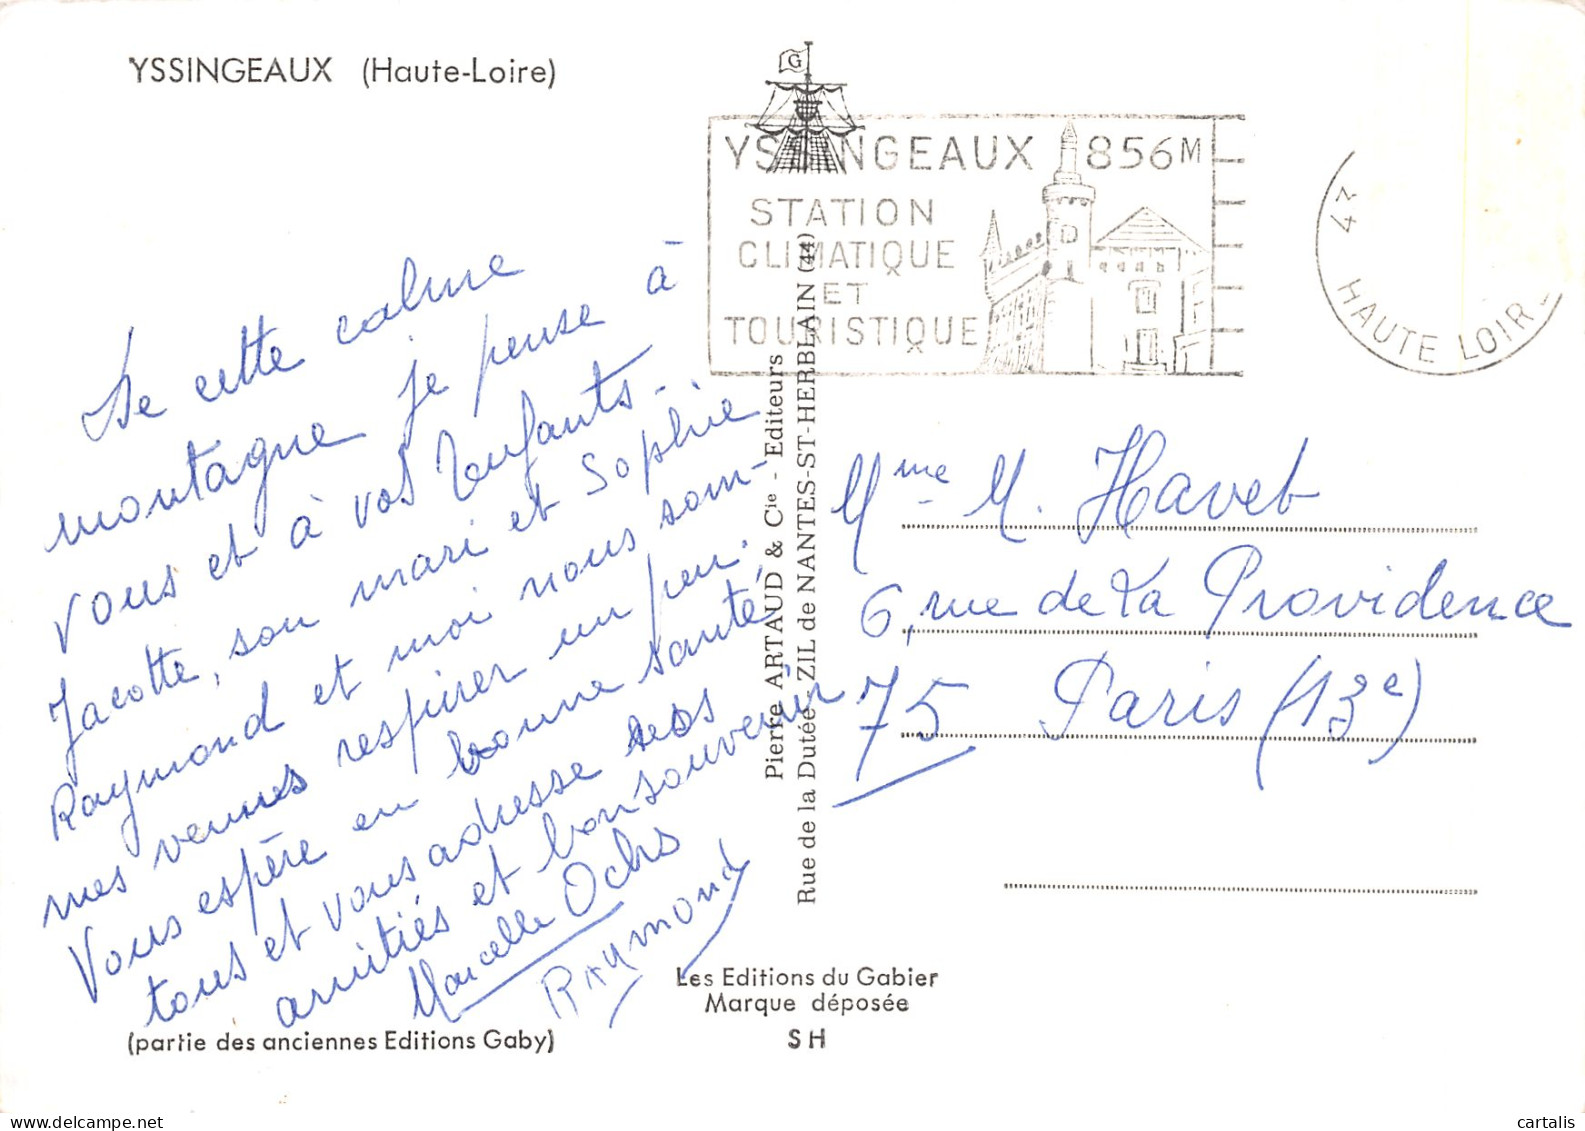 YSSINGEAUX (Haute-Loire)
G
YSSINGEAUX 856M
STATION
CLIMATIQUE
ET
TOURISTIQUE
43
HAUTE LOIR
De cette calme
montagne je pense à
vous et à vos enfants-
Jacotte, son mari et Sophie
Raymond et moi nous som-
mes venus respirer un peu.
Vous espère en bonne santé
tous et vous adresse nos
amitiés et bon souvenir
Marcelle Ochs
Raymond
Pierre ARTAUD & Cie - Editeurs
Rue de la Dutée - ZIL de NANTES-ST-HERBLAIN (44)
Mme M. Havet
6, rue de la Providence
75 Paris (13e)
Les Editions du Gabier
Marque déposée
SH
(partie des anciennes Editions Gaby)
delcampe.net
cartalis